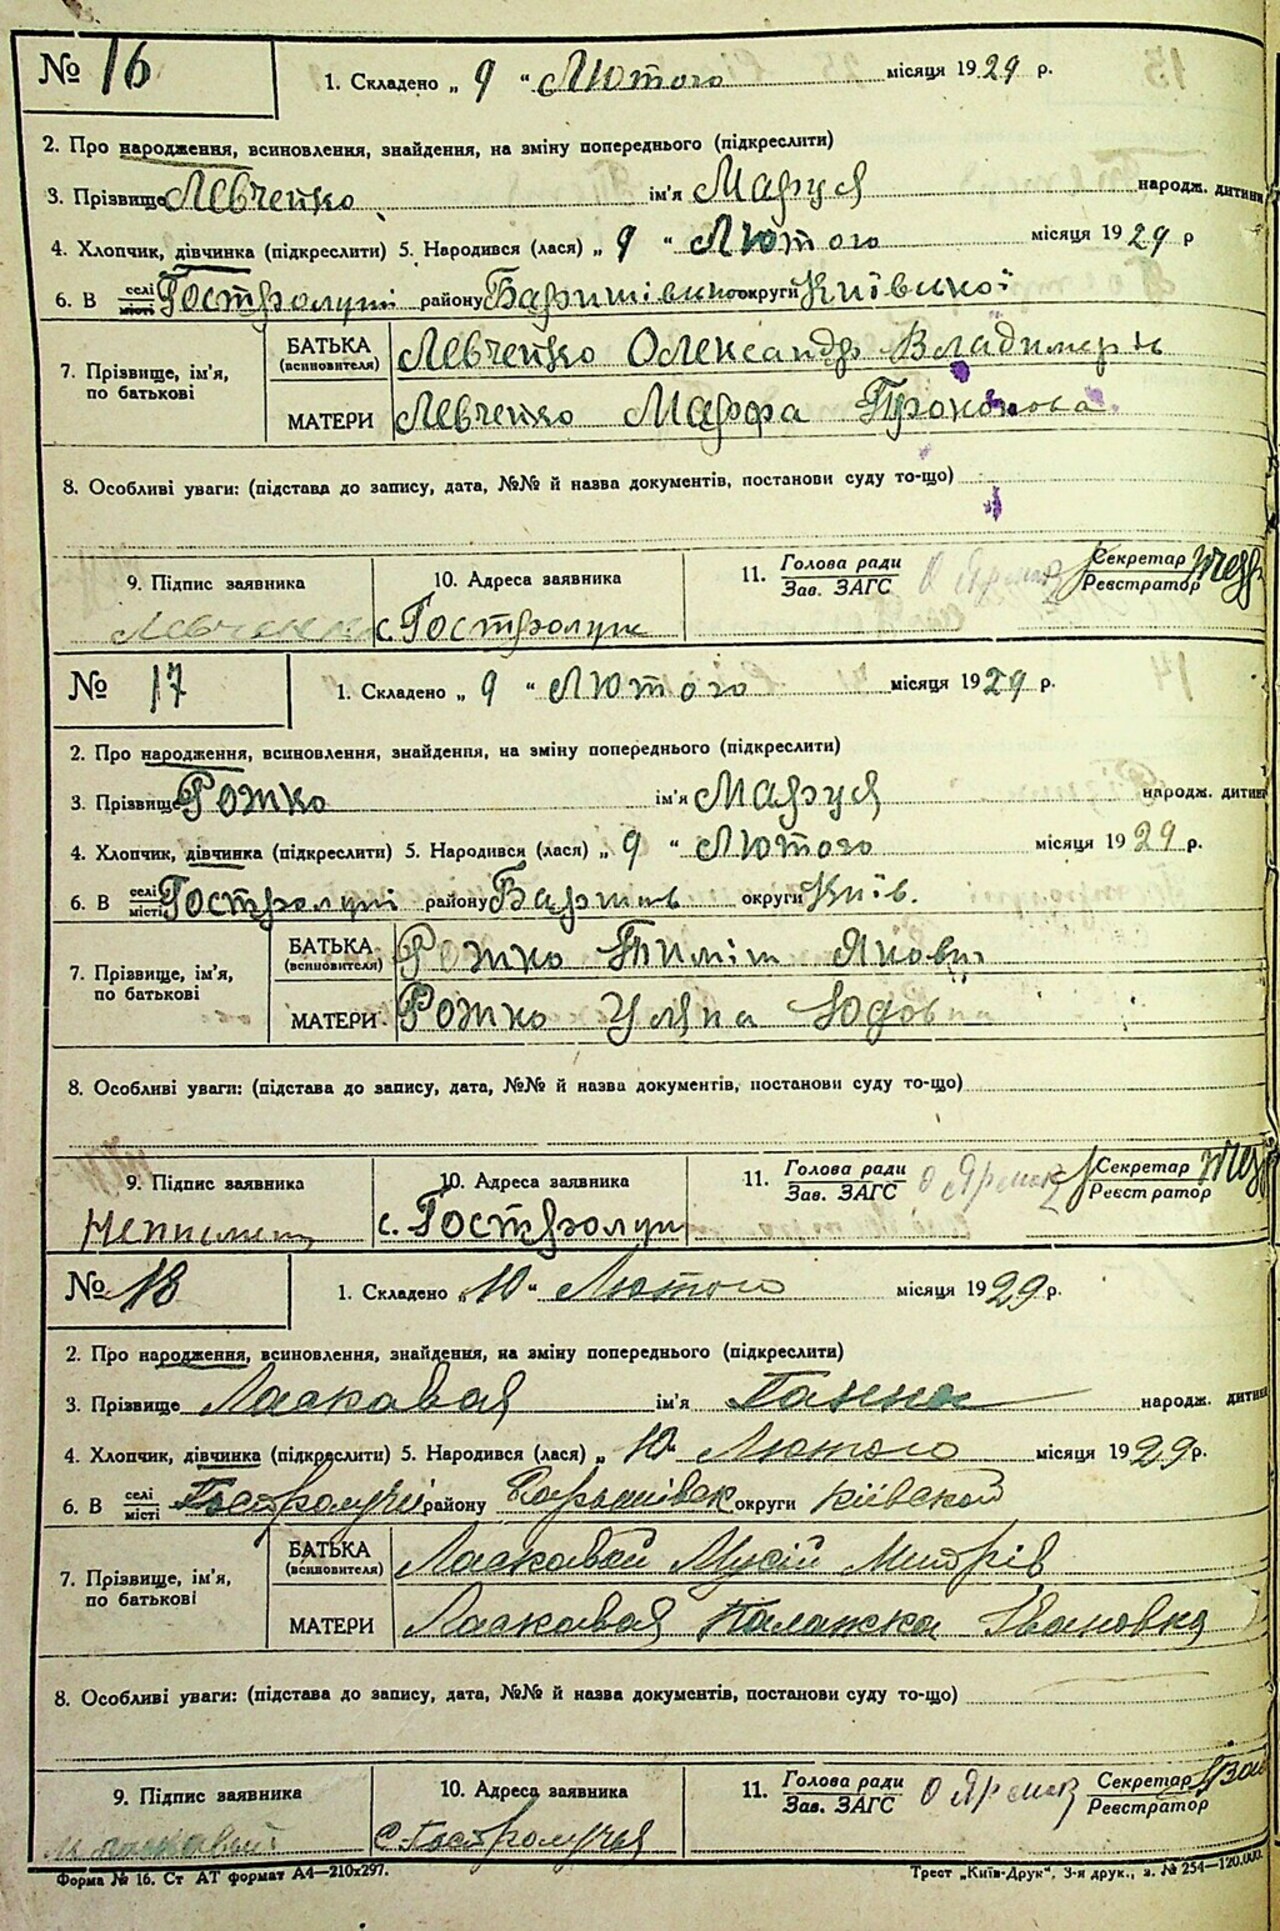 № 16 1. Складено „ 9 “ Лютого місяця 1929 р.
2. Про народження, всиновлення, знайдення, на зміну попереднього (підкреслити)
3. Прізвище Левченко ім'я Маруся народж. дитини
4. Хлопчик, дівчинка (підкреслити) 5. Народився (лася) „ 9 “ Лютого місяця 1929 р
6. В селі місті Гостролуччі району Баришівській округи Київської
7. Прізвище, ім'я, по батькові
БАТЬКА (всиновителя) Левченко Олександр Владимерів
МАТЕРИ Левченко Марфа Прокопова
8. Особливі уваги: (підстава до запису, дата, №№ й назва документів, постанови суду то-що)
9. Підпис заявника 10. Адреса заявника 11. Голова ради Зав. ЗАГС О Ярмак Секретар Реєстратор
Левченко с. Гостролуч
№ 17 1. Складено „ 9 “ Лютого місяця 1929 р.
2. Про народження, всиновлення, знайдення, на зміну попереднього (підкреслити)
3. Прізвище Рожко ім'я Маруся народж. дитини
4. Хлопчик, дівчинка (підкреслити) 5. Народився (лася) „ 9 “ Лютого місяця 1929 р.
6. В селі місті Гостролучі району Баришів округи Київ.
7. Прізвище, ім'я, по батькові
БАТЬКА (всиновителя) Рожко Тиміш Якович
МАТЕРИ Рожко Уляна Юдовна
8. Особливі уваги: (підстава до запису, дата, №№ й назва документів, постанови суду то-що)
9. Підпис заявника 10. Адреса заявника 11. Голова ради Зав. ЗАГС О Ярмак Секретар Реєстратор
Неписмен с. Гостролуч
№ 18 1. Складено „ 10 “ Лютого місяця 1929 р.
2. Про народження, всиновлення, знайдення, на зміну попереднього (підкреслити)
3. Прізвище Ласкавая ім'я Ганна народж. дитини
4. Хлопчик, дівчинка (підкреслити) 5. Народився (лася) „ 10 “ Лютого місяця 1929 р.
6. В селі місті Гостролучі району Баришівск округи Київской
7. Прізвище, ім'я, по батькові
БАТЬКА (всиновителя) Ласкавай Мусій Митрів
МАТЕРИ Ласкавая Палажка Івановна
8. Особливі уваги: (підстава до запису, дата, №№ й назва документів, постанови суду то-що)
9. Підпис заявника 10. Адреса заявника 11. Голова ради Зав. ЗАГС О Ярмак Секретар Реєстратор
М Ласкавий с. Гостролучья
Форма № 16. Ст АТ формат А4—210х297. Трест „Київ-Друк“, 3-я друк., з. № 254—120.000.